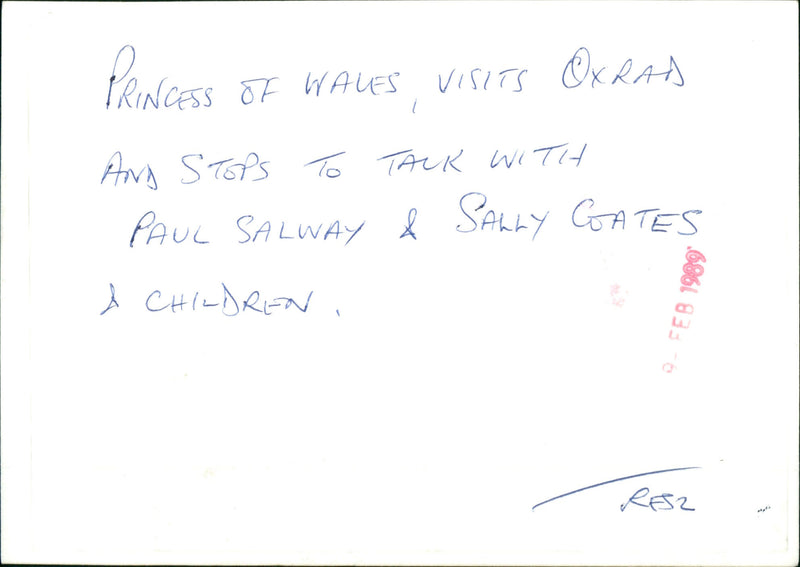 PRINCESS OF WALES, VISITS OXRAD
AND STOPS TO TALK WITH
PAUL SALWAY & SALLY COATES
& CHILDREN.
9- FEB 1989